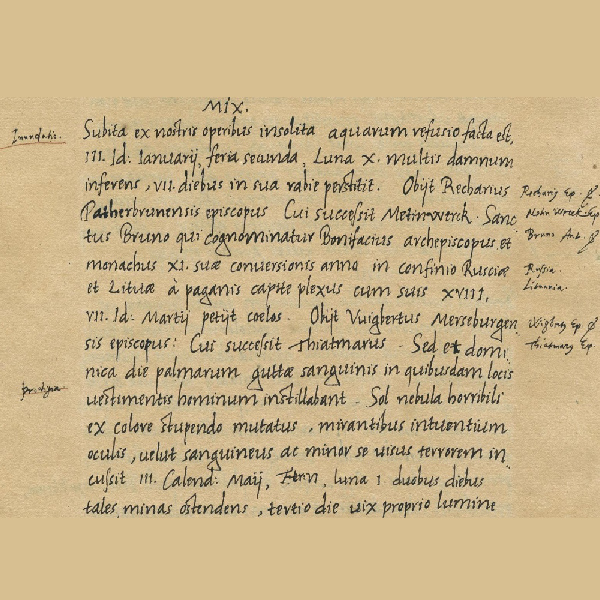 MIX.
Inundatio.
Subita ex nostris operibus insolita aquarum refusio facta est,
III. Id: Ianuarij, feria secunda, Luna X. multis damnum
inferens, VII. diebus in sua rabie perstitit. Obijt Recharius
Patherbrunensis episcopus Cui successit Metinwerck. Sanc
tus Bruno qui cognominatur Bonifacius archepiscopus et
monachus XI. suæ conversionis anno in confinio Rusciæ
et Lituæ à paganis capite plexus cum suis XVIII,
VII. Id: Martij petijt coelos. Obijt Vuigbertus Merseburgen
sis episcopus: Cui successit Thiatmarus. Sed et domi
nica die palmarum guttæ sanguinis in quibusdam locis
uestimentis hominum instillabant. Sol nebula horribili
ex colore stupendo mutatus, mirantibus intuentium
oculis, uelut sanguineus ac minor se uisus terrorem in
cussit III. Calend: Maij, luna I duobus diebus
tales minas ostendens, tertio die uix proprio lumine
Recharius Ep.
Bruno
Russia.
Lituaria.
Wigbertus Ep
Thiatmarus Ep
Prodigia